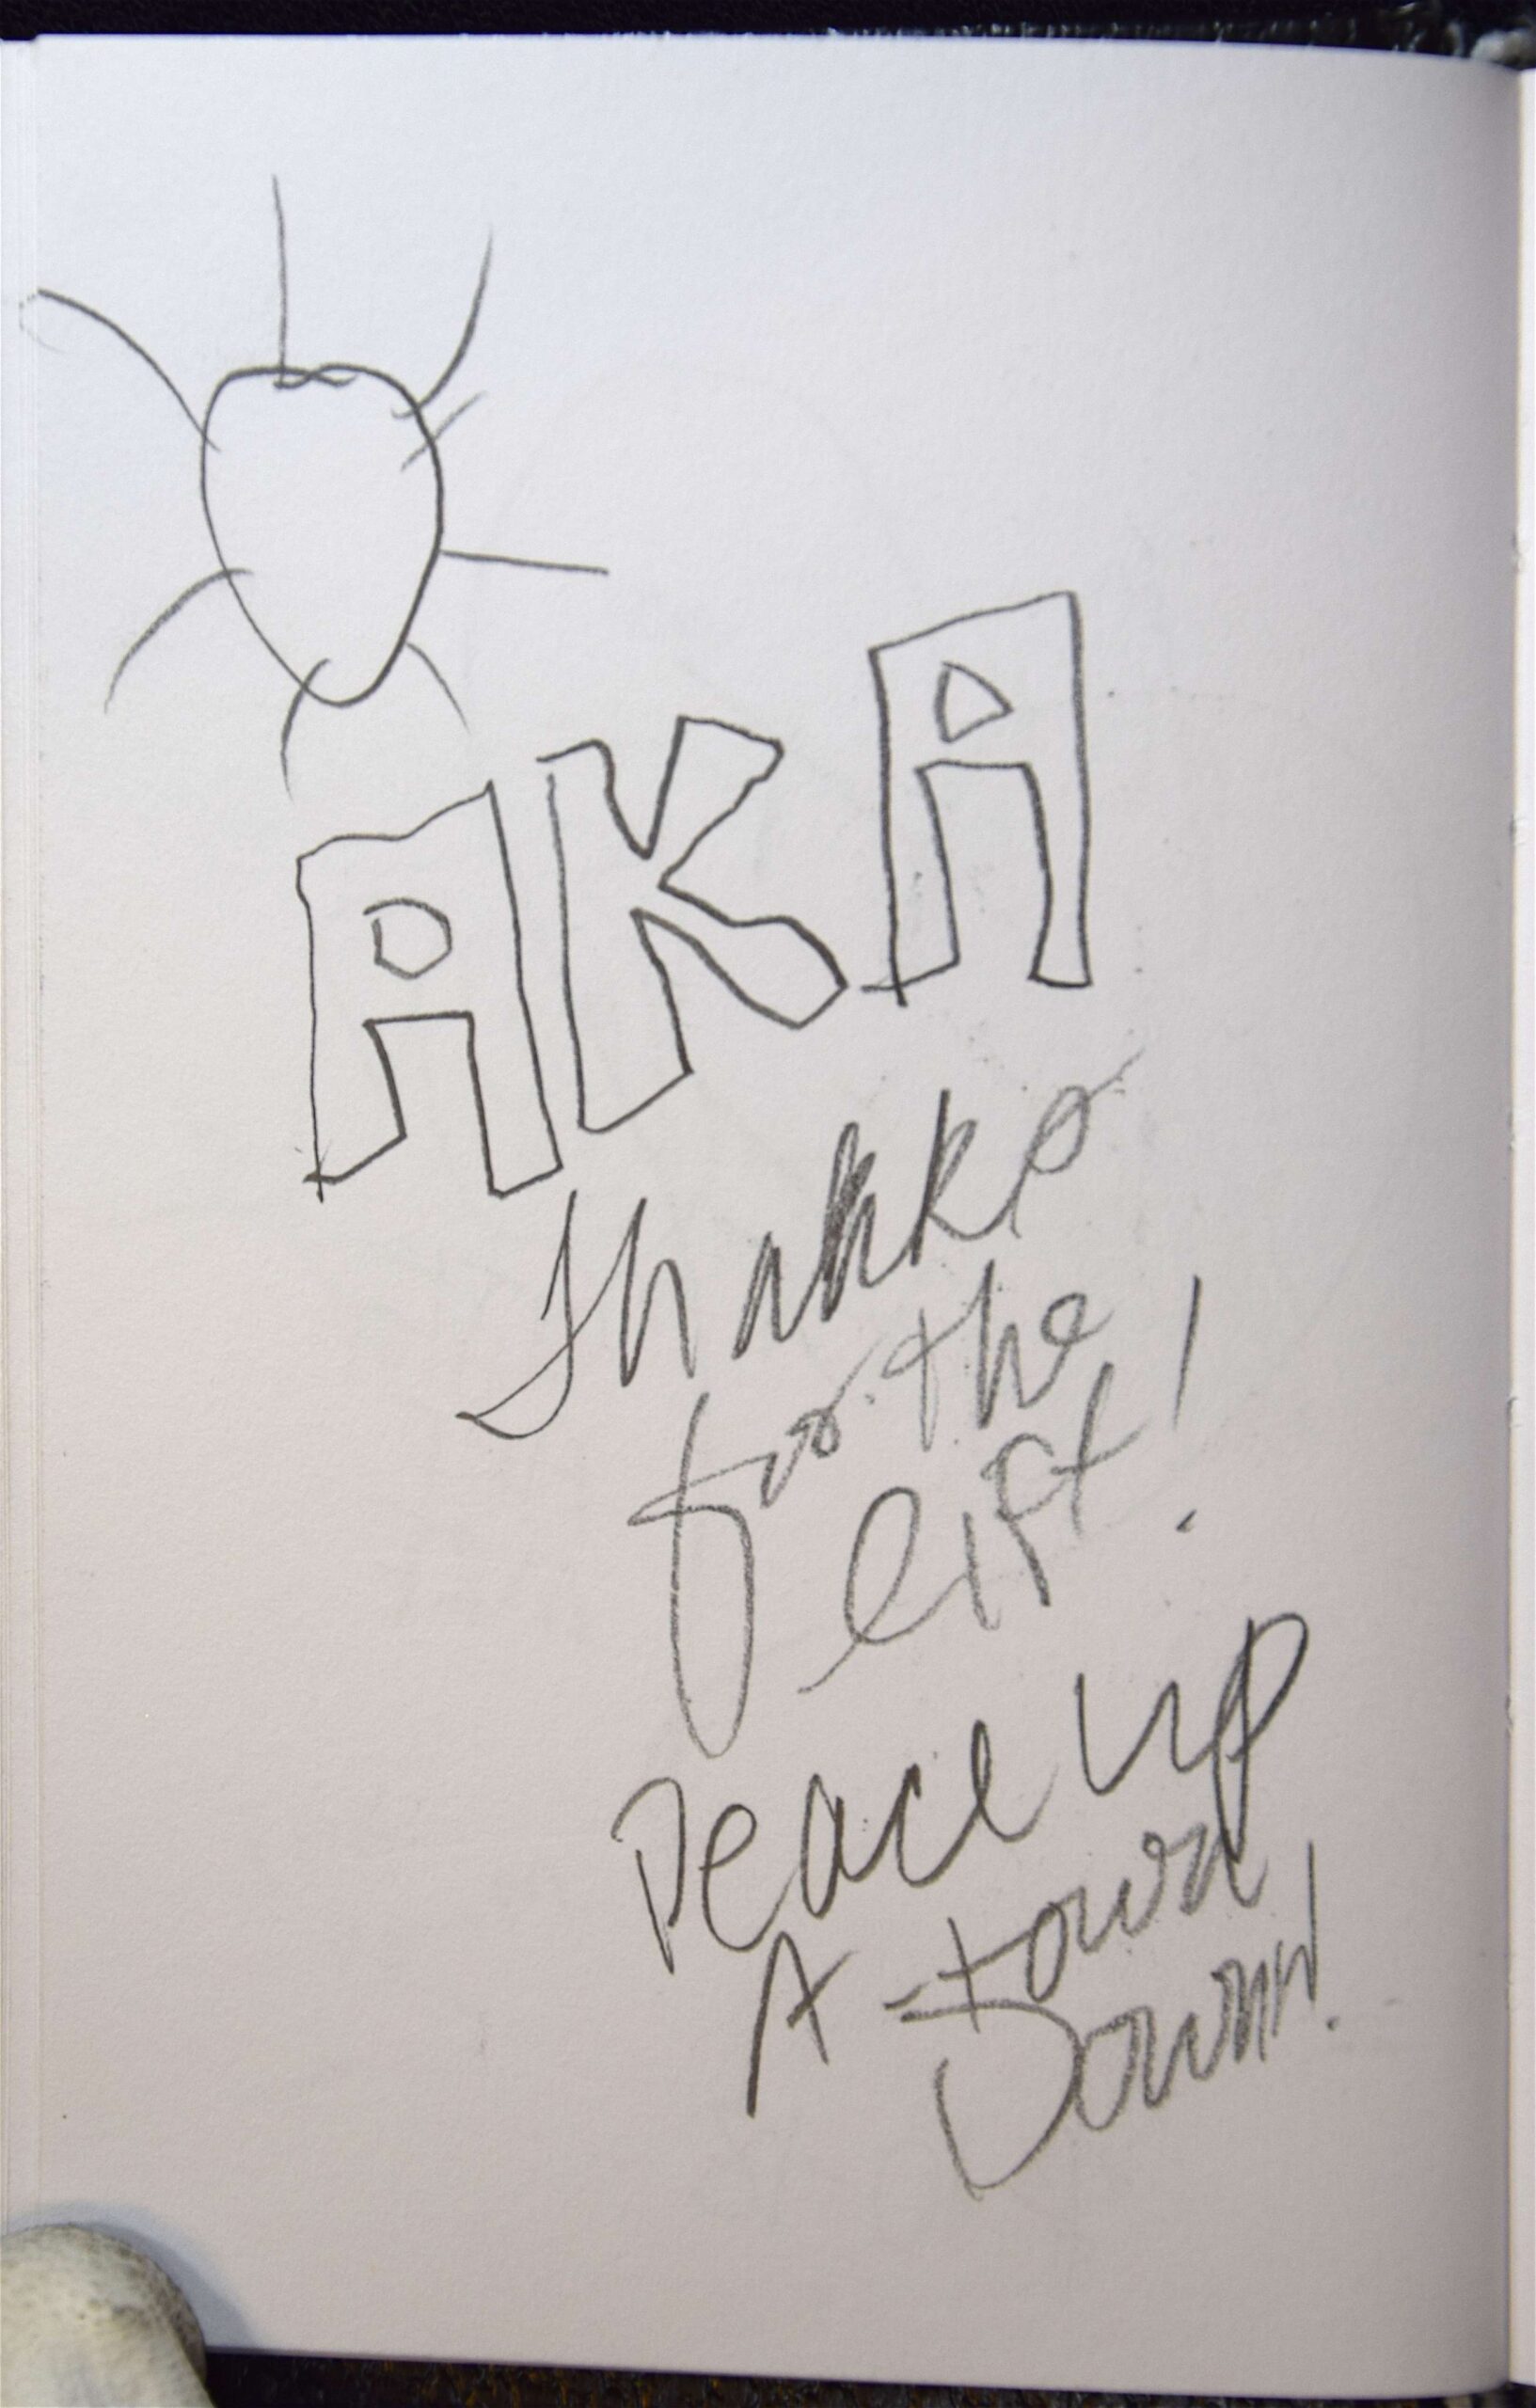 AKA
thanks
for the
lift!
Peace up
A-town
Down!